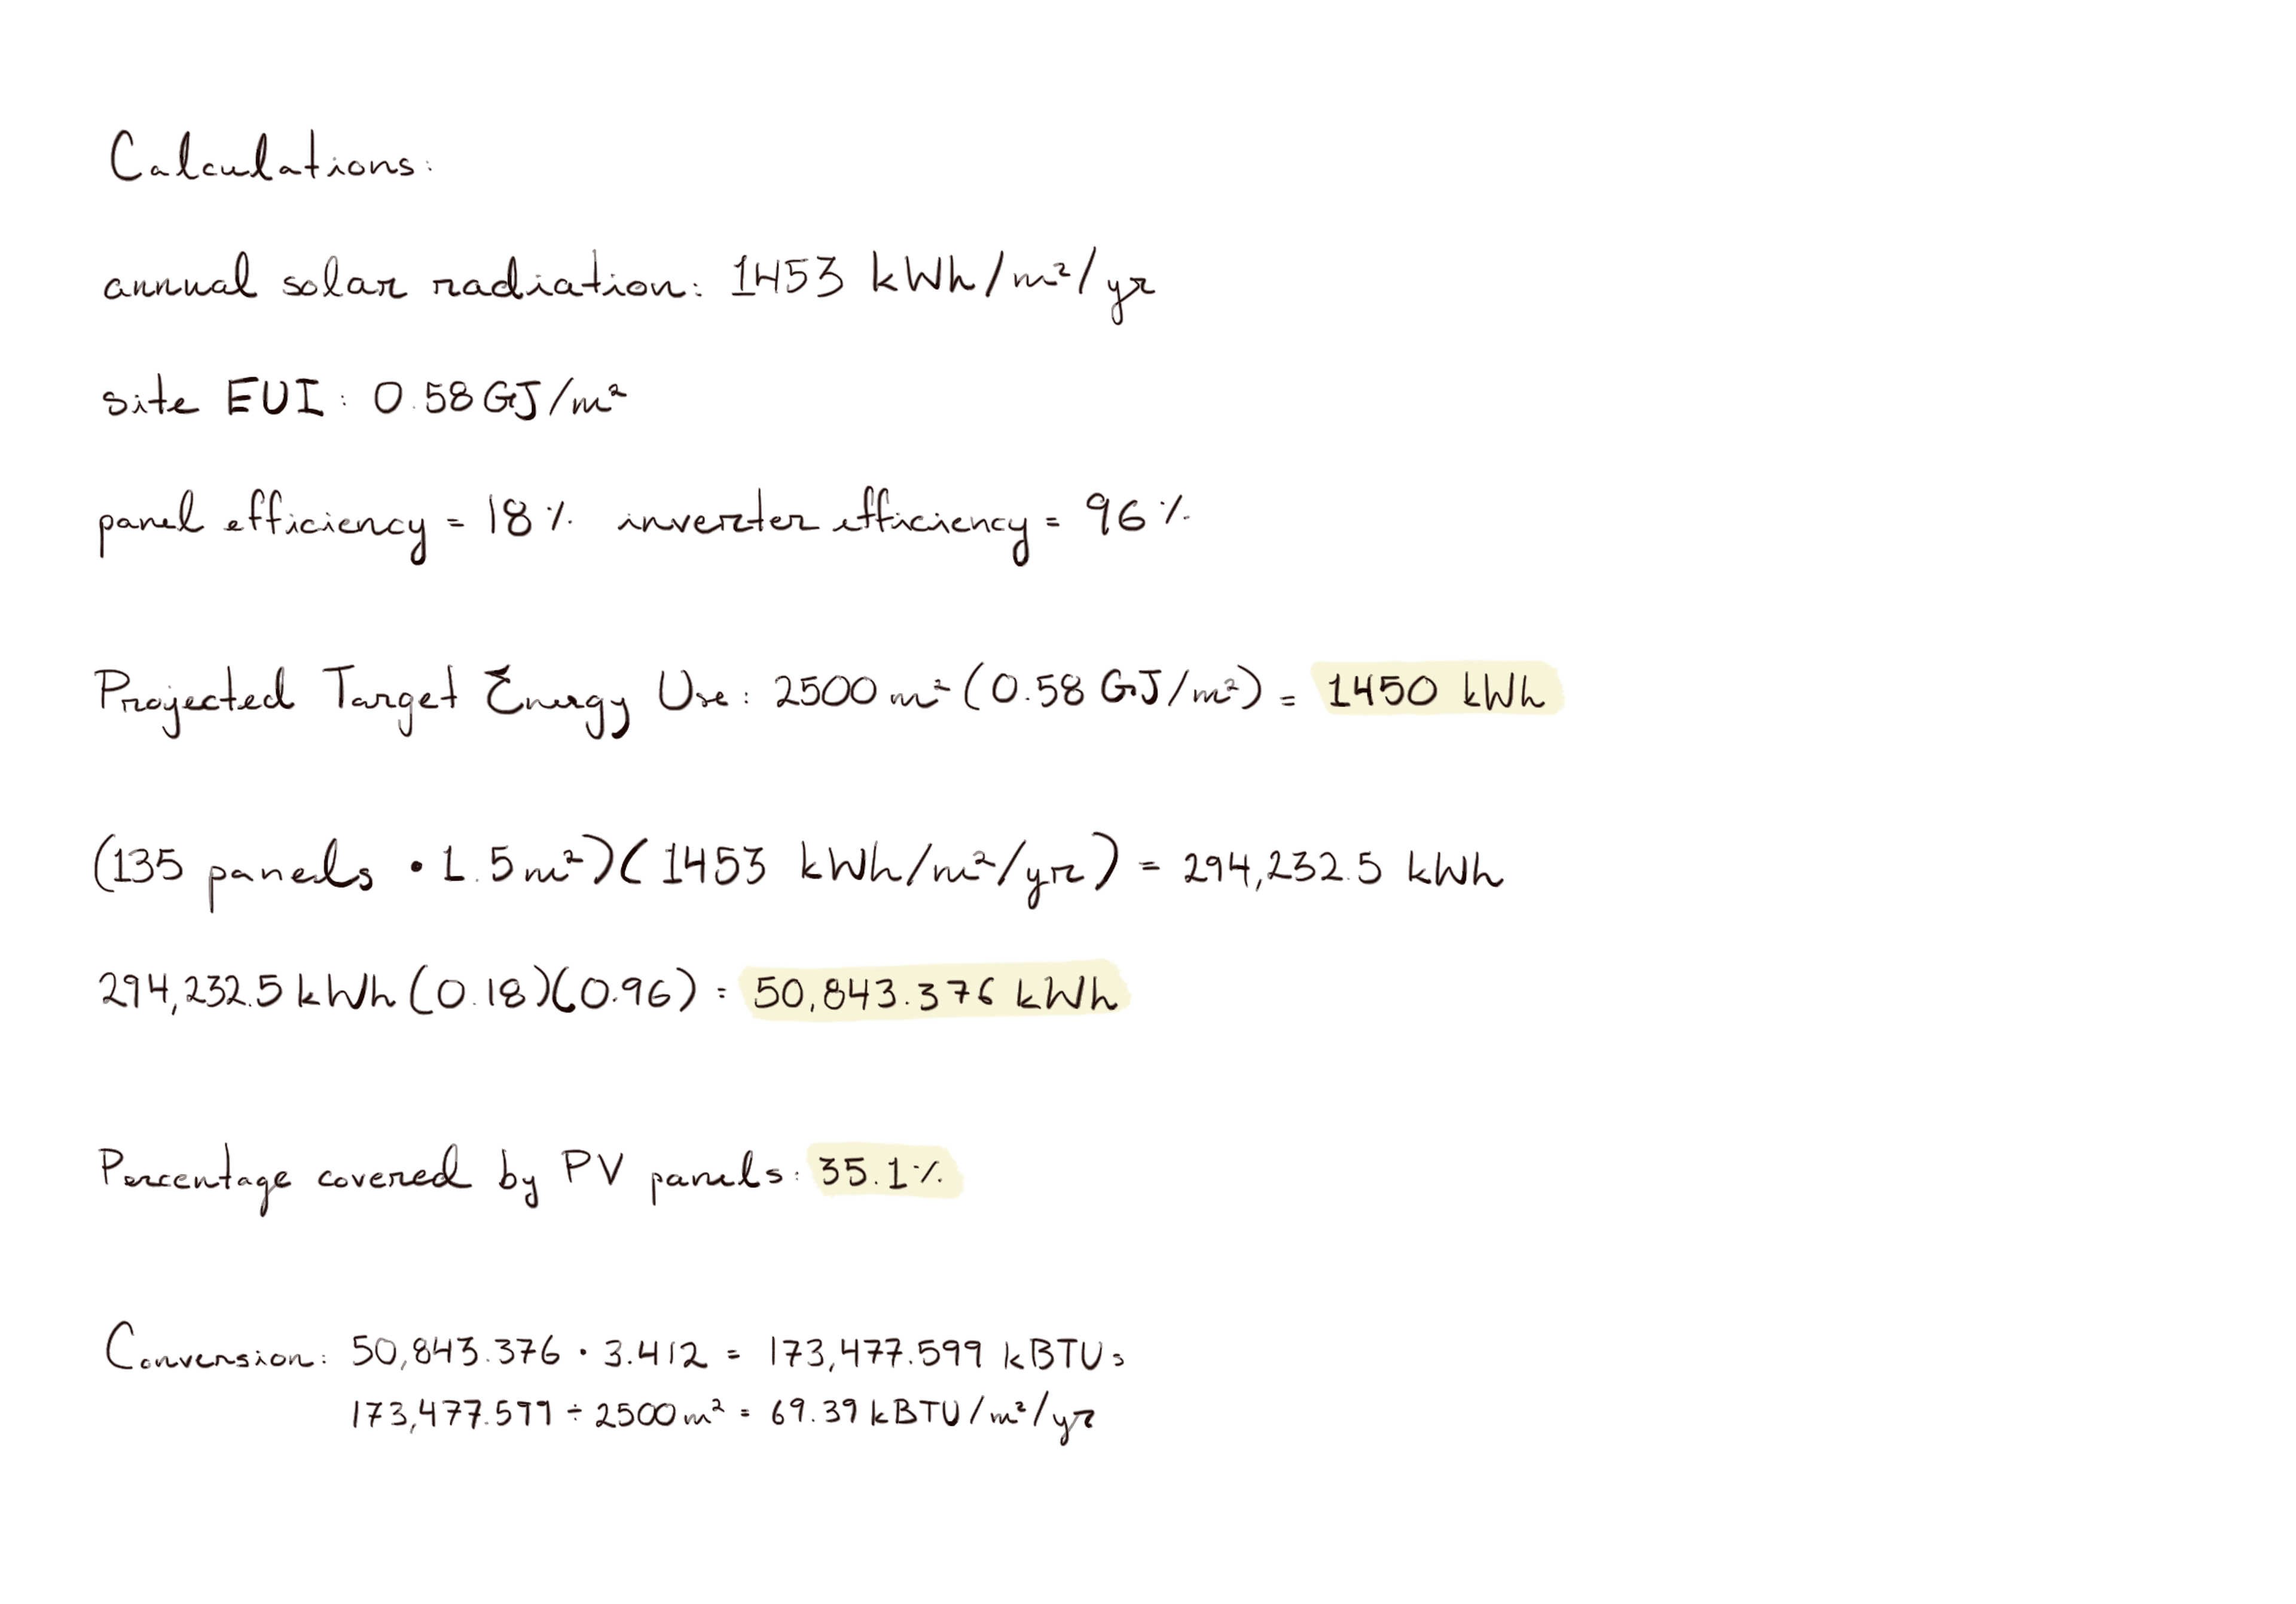 Calculations:
annual solar radiation: 1453 kWh/m²/yr
site EUI: 0.58 GJ/m²
panel efficiency = 18% inverter efficiency = 96%
Projected Target Energy Use: 2500 m² (0.58 GJ/m²) = 1450 kWh
(135 panels • 1.5 m²)(1453 kWh/m²/yr) = 294,232.5 kWh
294,232.5 kWh (0.18)(0.96) = 50,843.376 kWh
Percentage covered by PV panels: 35.1%
Conversion: 50,843.376 • 3.412 = 173,477.599 kBTUs
173,477.599 ÷ 2500 m² = 69.39 kBTU/m²/yr